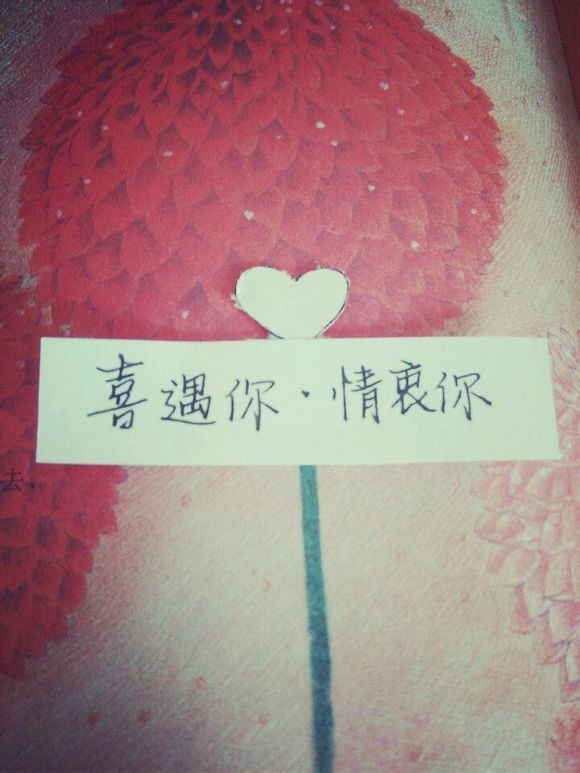 喜遇你·情衷你
去,